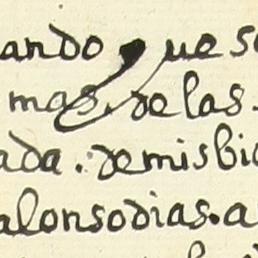 ando que se
mas. de las.
ada. de mis bie
alonso dias. a